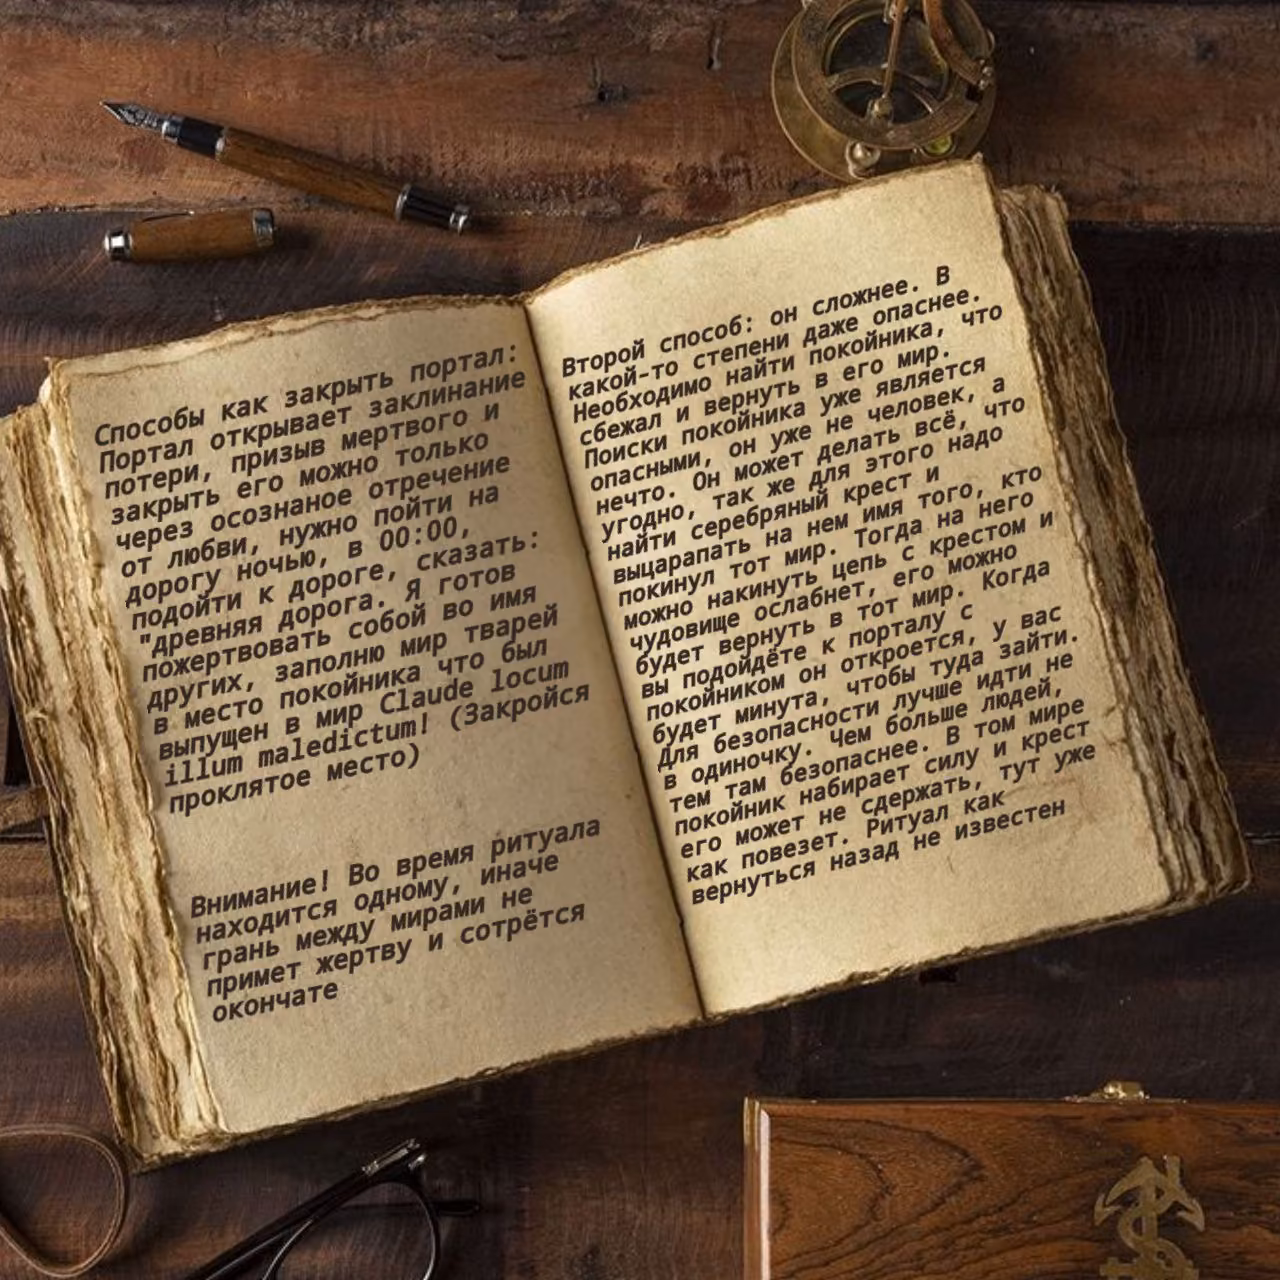 Способы как закрыть портал:
Портал открывает заклинание
потери, призыв мертвого и
закрыть его можно только
через осознаное отречение
от любви, нужно пойти на
дорогу ночью, в 00:00,
подойти к дороге, сказать:
"древняя дорога. Я готов
пожертвовать собой во имя
других, заполню мир тварей
в место покойника что был
выпущен в мир Claude locum
illum maledictum! (Закройся
проклятое место)
Внимание! Во время ритуала
находится одному, иначе
грань между мирами не
примет жертву и сотрётся
окончате
Второй способ: он сложнее. В
какой-то степени даже опаснее.
Необходимо найти покойника, что
сбежал и вернуть в его мир.
Поиски покойника уже является
опасными, он уже не человек, а
нечто. Он может делать всё, что
угодно, так же для этого надо
найти серебряный крест и
выцарапать на нем имя того, кто
покинул тот мир. Тогда на него
можно накинуть цепь с крестом и
чудовище ослабнет, его можно
будет вернуть в тот мир. Когда
вы подойдёте к порталу с
покойником он откроется, у вас
будет минута, чтобы туда зайти.
Для безопасности лучше идти не
в одиночку. Чем больше людей,
тем там безопаснее. В том мире
покойник набирает силу и крест
его может не сдержать, тут уже
как повезет. Ритуал как
вернуться назад не известен